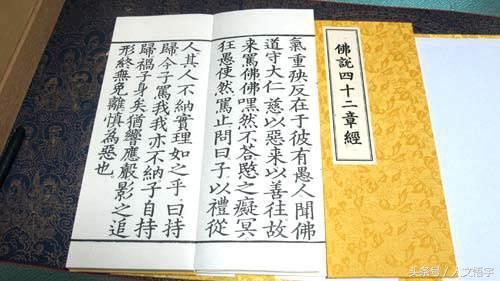 佛說四十二章經
氣重殃反在于彼有愚人聞佛
道守大仁慈以惡來以善往故
來罵佛佛嘿然不答愍之癡冥
狂愚使然罵止問曰子以禮從
人其人不納實理如之乎曰持
歸今子罵我我亦不納子自持
歸禍子身矣猶響應聲影之追
形終無免離慎為惡也
头条号／人文悟宇